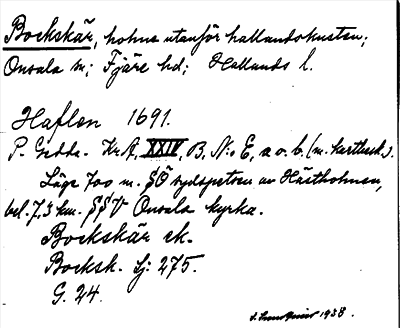 Bockskär, holme utanför hallandskusten;
Onsala sn; Fjäre hd; Hallands l.
Haflen 1691.
P. Gedda. Kr.A. XXIV, B. N:o E, a o. b. (m. kartbeck.).
Läge 700 m. SÖ sydspetsen av Hästholmen,
bel. 7,3 km. SSV Onsala kyrka.
Bockskär ek.
Bocksk. Sj: 275.
G. 24.
1938.